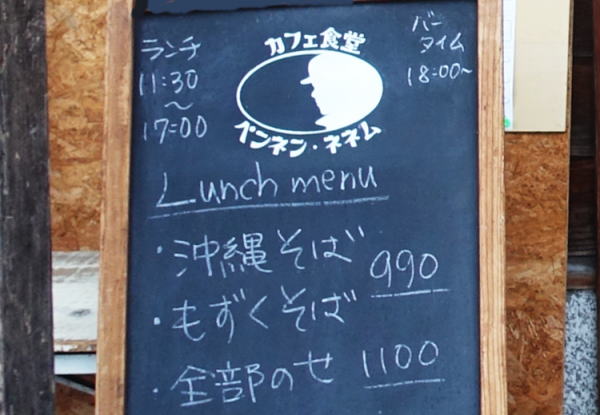 ランチ
11:30
〜
17:00
カフェ食堂
ペンネン・ネネム
バー
タイム
18:00~
Lunch menu
・沖縄そば
990
・もずくそば
・全部のせ 1100